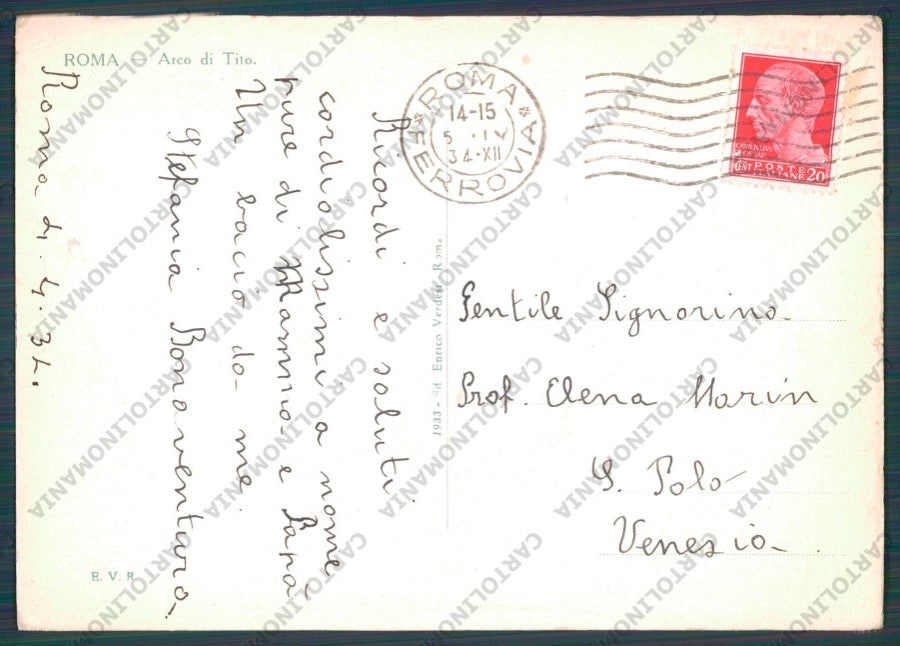 ROMA — Arco di Tito.
Roma 4.4.34.
Ricordi e saluti
cordialissimi a nome
pure di Mamma e Papà
Un bacio da me
Stefania Bonaventura
E. V. R.
1933 - Ed. Enrico Verdesi - Roma
ROMA
14-15
5 · IV
34·XII
FERROVIA
POSTE
ITALIANE
CENT 20
Gentile Signorina
Prof. Elena Marin
S. Polo
Venezia
CARTOLINOMANIA